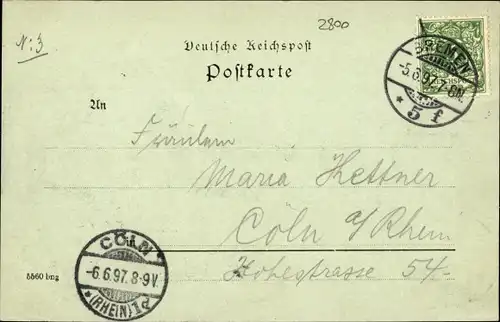 N: 3
2800
Deutsche Reichspost
Postkarte
BREMEN
-5.6.97.7-8N.
* 5 f
An
Fräulein
Maria Hettner
Cöln a/Rhein
Hohestrasse 54-
CÖLN
-6.6.97.8-9V.
*(RHEIN)1d
5560 bng